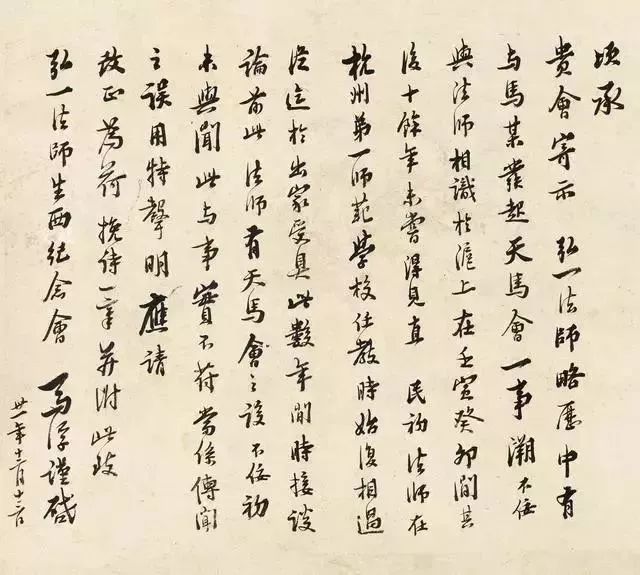 頃承
貴會寄示 弘一法師略歷中有
与馬某發起天馬會一事溯不佞
與法師相識於滬上在壬寅癸卯間其
後十餘年未嘗得見直 民初法師在
杭州第一師範學校任教時始復相過
從迄於出家受具此數年間時接談
論前此法師有天馬會之設不佞初
未與聞此与事實不符當係傳聞
之誤用特聲明應請
改正為荷挽詩一章并附此致
弘一法師生西紀念會 馬浮謹啓
卅一年十二月十三日